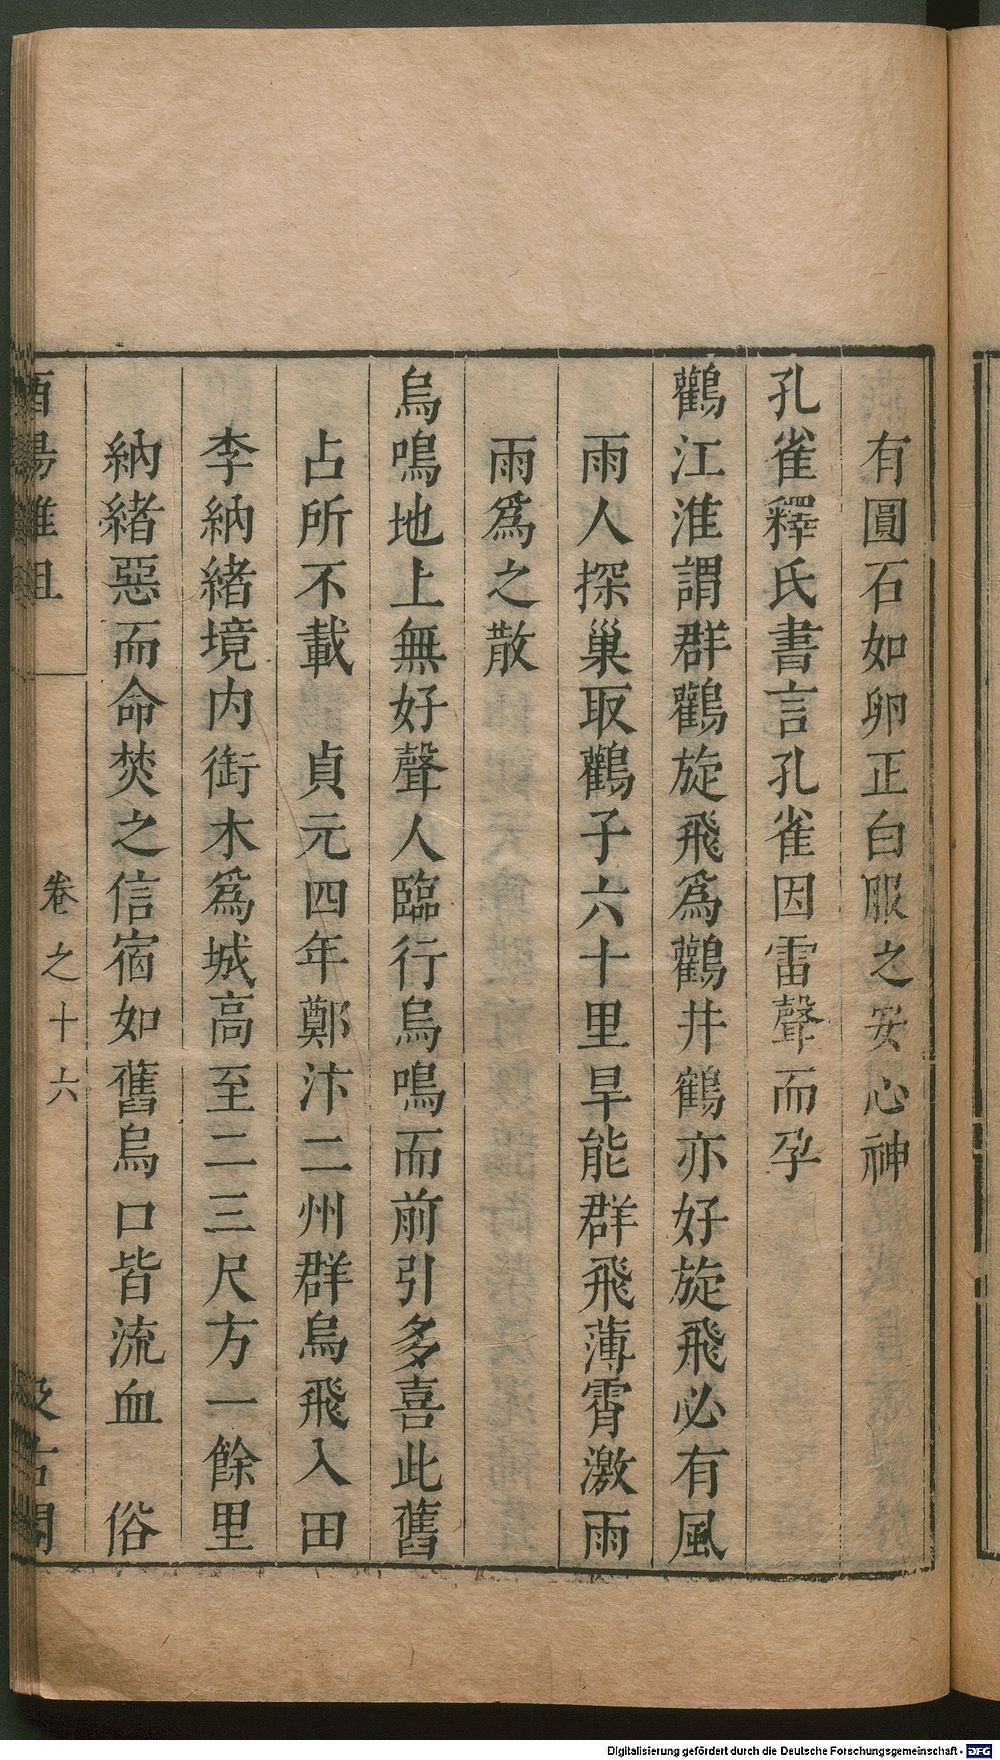 有圓石如卵正白服之安心神
孔雀釋氏書言孔雀因雷聲而孕
鸛江淮謂群鸛旋飛爲鸛井鶴亦好旋飛必有風
雨人探巢取鸛子六十里旱能群飛薄霄激雨
雨爲之散
烏鳴地上無好聲人臨行烏鳴而前引多喜此舊
占所不載　貞元四年鄭汴二州群烏飛入田
李納緒境内銜木爲城高至二三尺方一餘里
納緒惡而命焚之信宿如舊烏口皆流血　俗
酉陽雜俎　卷之十六　汲古閣
Digitalisierung gefördert durch die Deutsche Forschungsgemeinschaft - DFG